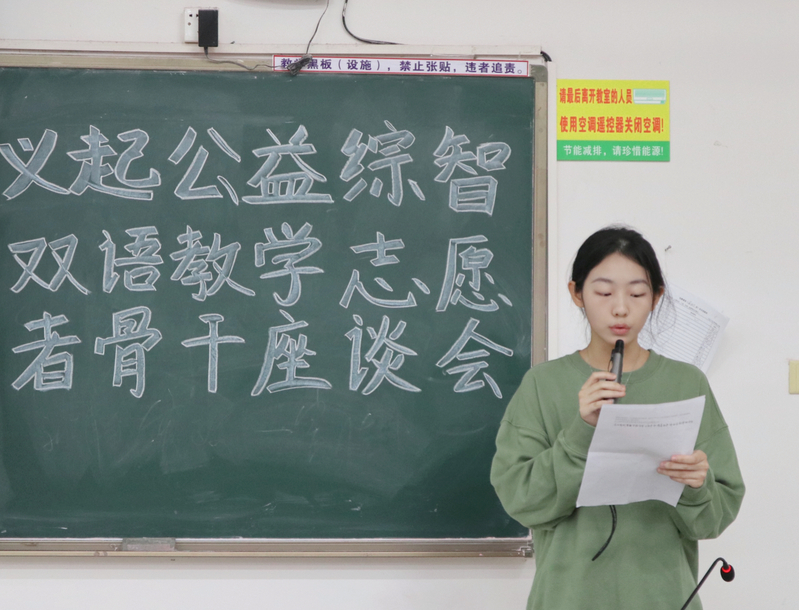 义起公益综智
双语教学志愿
者骨干座谈会
黑板（设施），禁止张贴，违者追责。
请最后离开教室的人员
使用空调遥控器关闭空调!
节能减排，请珍惜能源!